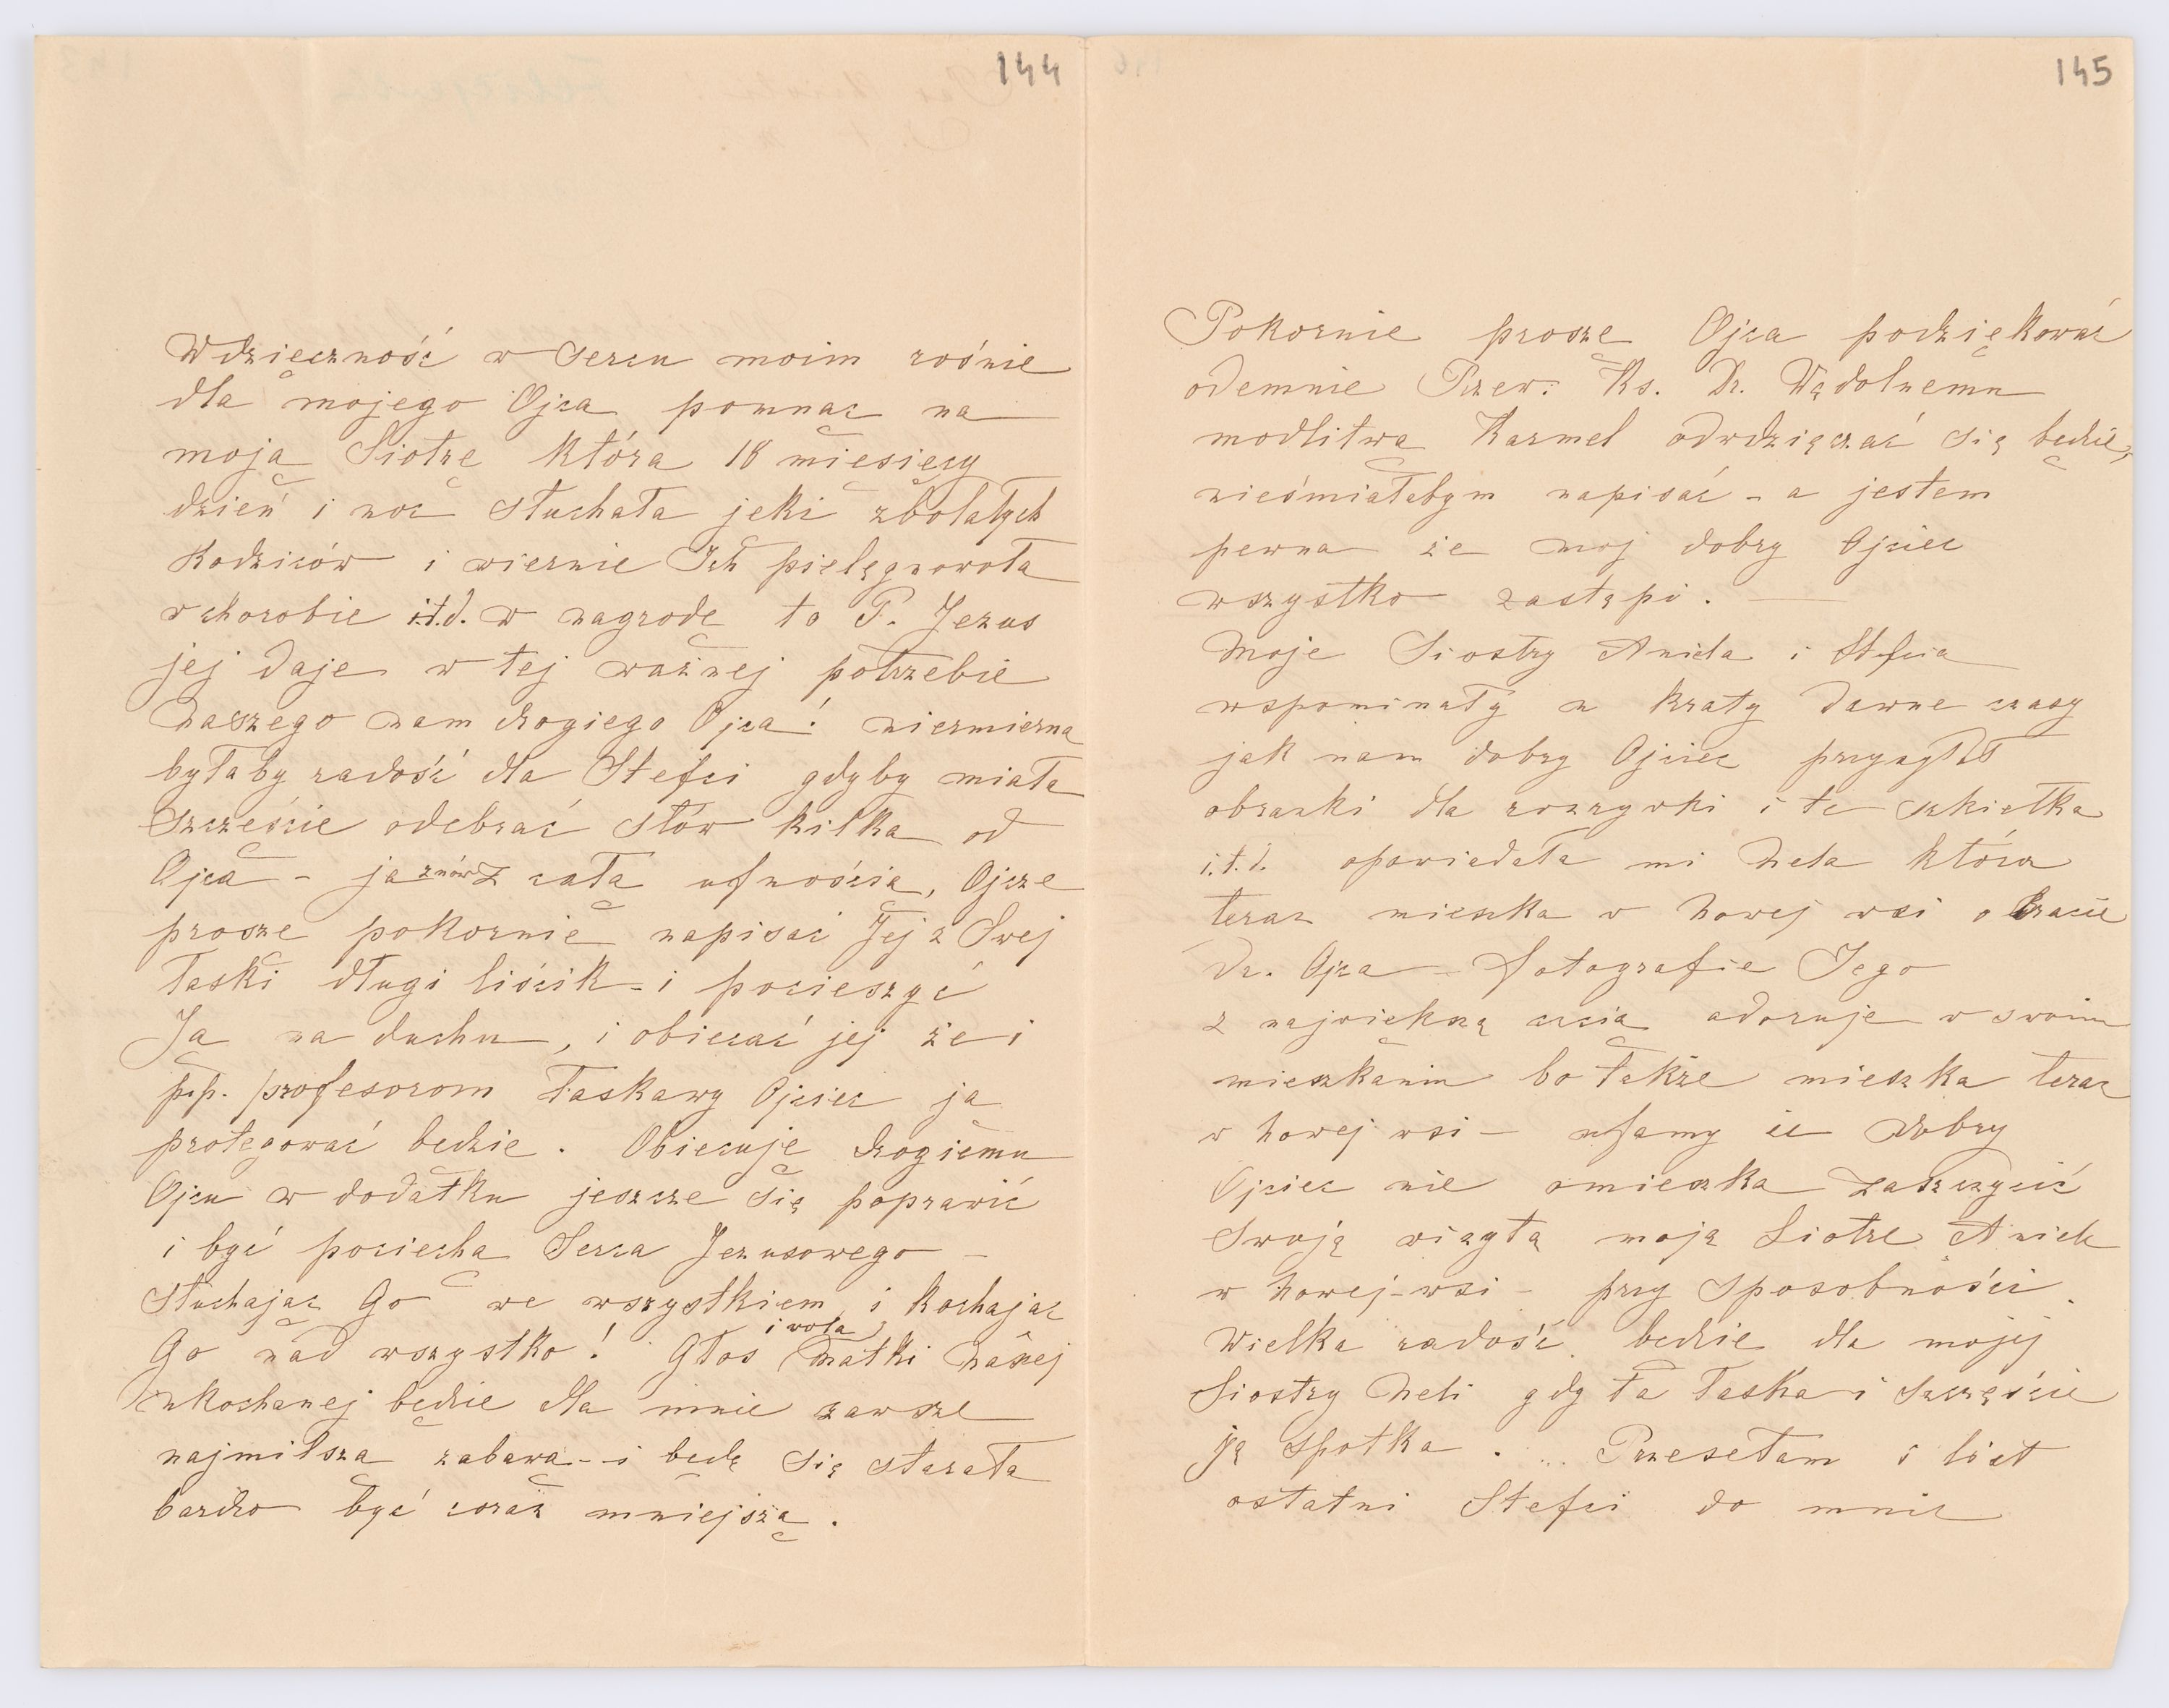 144
Wdzięczność w Sercu moim rośnie
dla mojego Ojca pomnąc na
moją Siotrę która 18 miesięcy
dzień i noc słuchała jęki zbolałych
Rodziców i wiernie Ich pielęgnowała
w chorobie i.t.d. w nagrodę to P. Jezus
jej daje w tej ważnej potrzebie
naszego nam drogiego Ojca! niezmierna
byłaby radość dla Stefci gdyby miała
szczęście odebrać słów kilka od
Ojca - ja znów z całą ufnością, Ojcze
proszę pokornie napisać Jej z Swej
łaski długi liścik - i pocieszyć
Ją na duchu, i obiecać jej że i
p.p. profesorom łaskawy Ojciec ją
protegować będzie. Obiecuję drogiemu
Ojcu w dodatku jeszcze się poprawić
i być pociechą Serca Jezusowego -
słuchając Go we wszystkiem, i kochając
Go nad wszystko! Głos i wola Matki Naszej
ukochanej będzie dla mnie zawsze
najmilszą zabawą - i będę się starała
bardzo być coraz mniejszą.
145
Pokornie proszę Ojca podziękować
odemnie Przew: Ks. Dr. Wądolnemu
modlitwą Karmel odwdzięczać się będzie,
nieśmiałabym napisać - a jestem
pewna że moj dobry Ojciec
wszystko zastąpi. -
Moje Siostry Aniela i Stefcia
wspominały u kraty dawne czasy
jak nam dobry Ojciec przysyłał
obrazki dla rozrywki i te szkiełka
i.t.d. opowiadała mi Nela która
teraz mieszka w Nowej wsi o bracie
Dr. Ojca - fotografie Jego
z największą czcią adoruje w swoim
mieszkaniu bo także mieszka teraz
w Nowej wsi - ufamy że dobry
Ojciec nie omieszka zaszczycić
Swoją wizytą moją Siotrę Anielę
w Nowej-wsi - przy sposobności.
Wielka radość będzie dla mojej
Siostry Neli gdy ta łaska i szczęście
ją spotka. ... Przesełam i list
ostatni Stefci do mnie